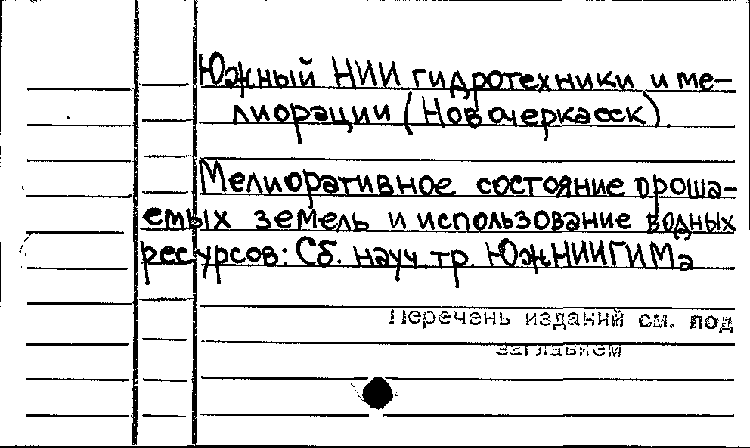 Южный НИИ гидротехники и ме-
лиорации (Новочеркасск).
Мелиоративное состояние ороша-
емых земель и использование водных
ресурсов: Сб. науч. тр. ЮжНИИГИМа
Перечень изданий см. под
заглавием